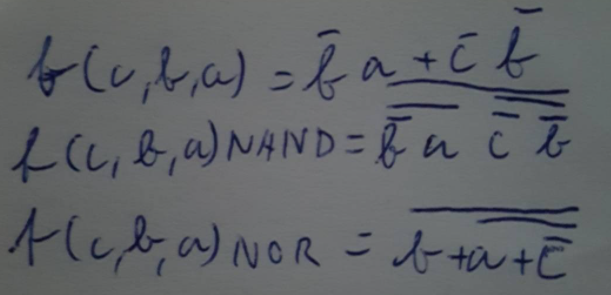 f(c,b,a) = b̄ a + c̄ b̄
f(c,b,a) NAND = b̄ a c̄ b̄
f(c,b,a) NOR = b+a+c̄